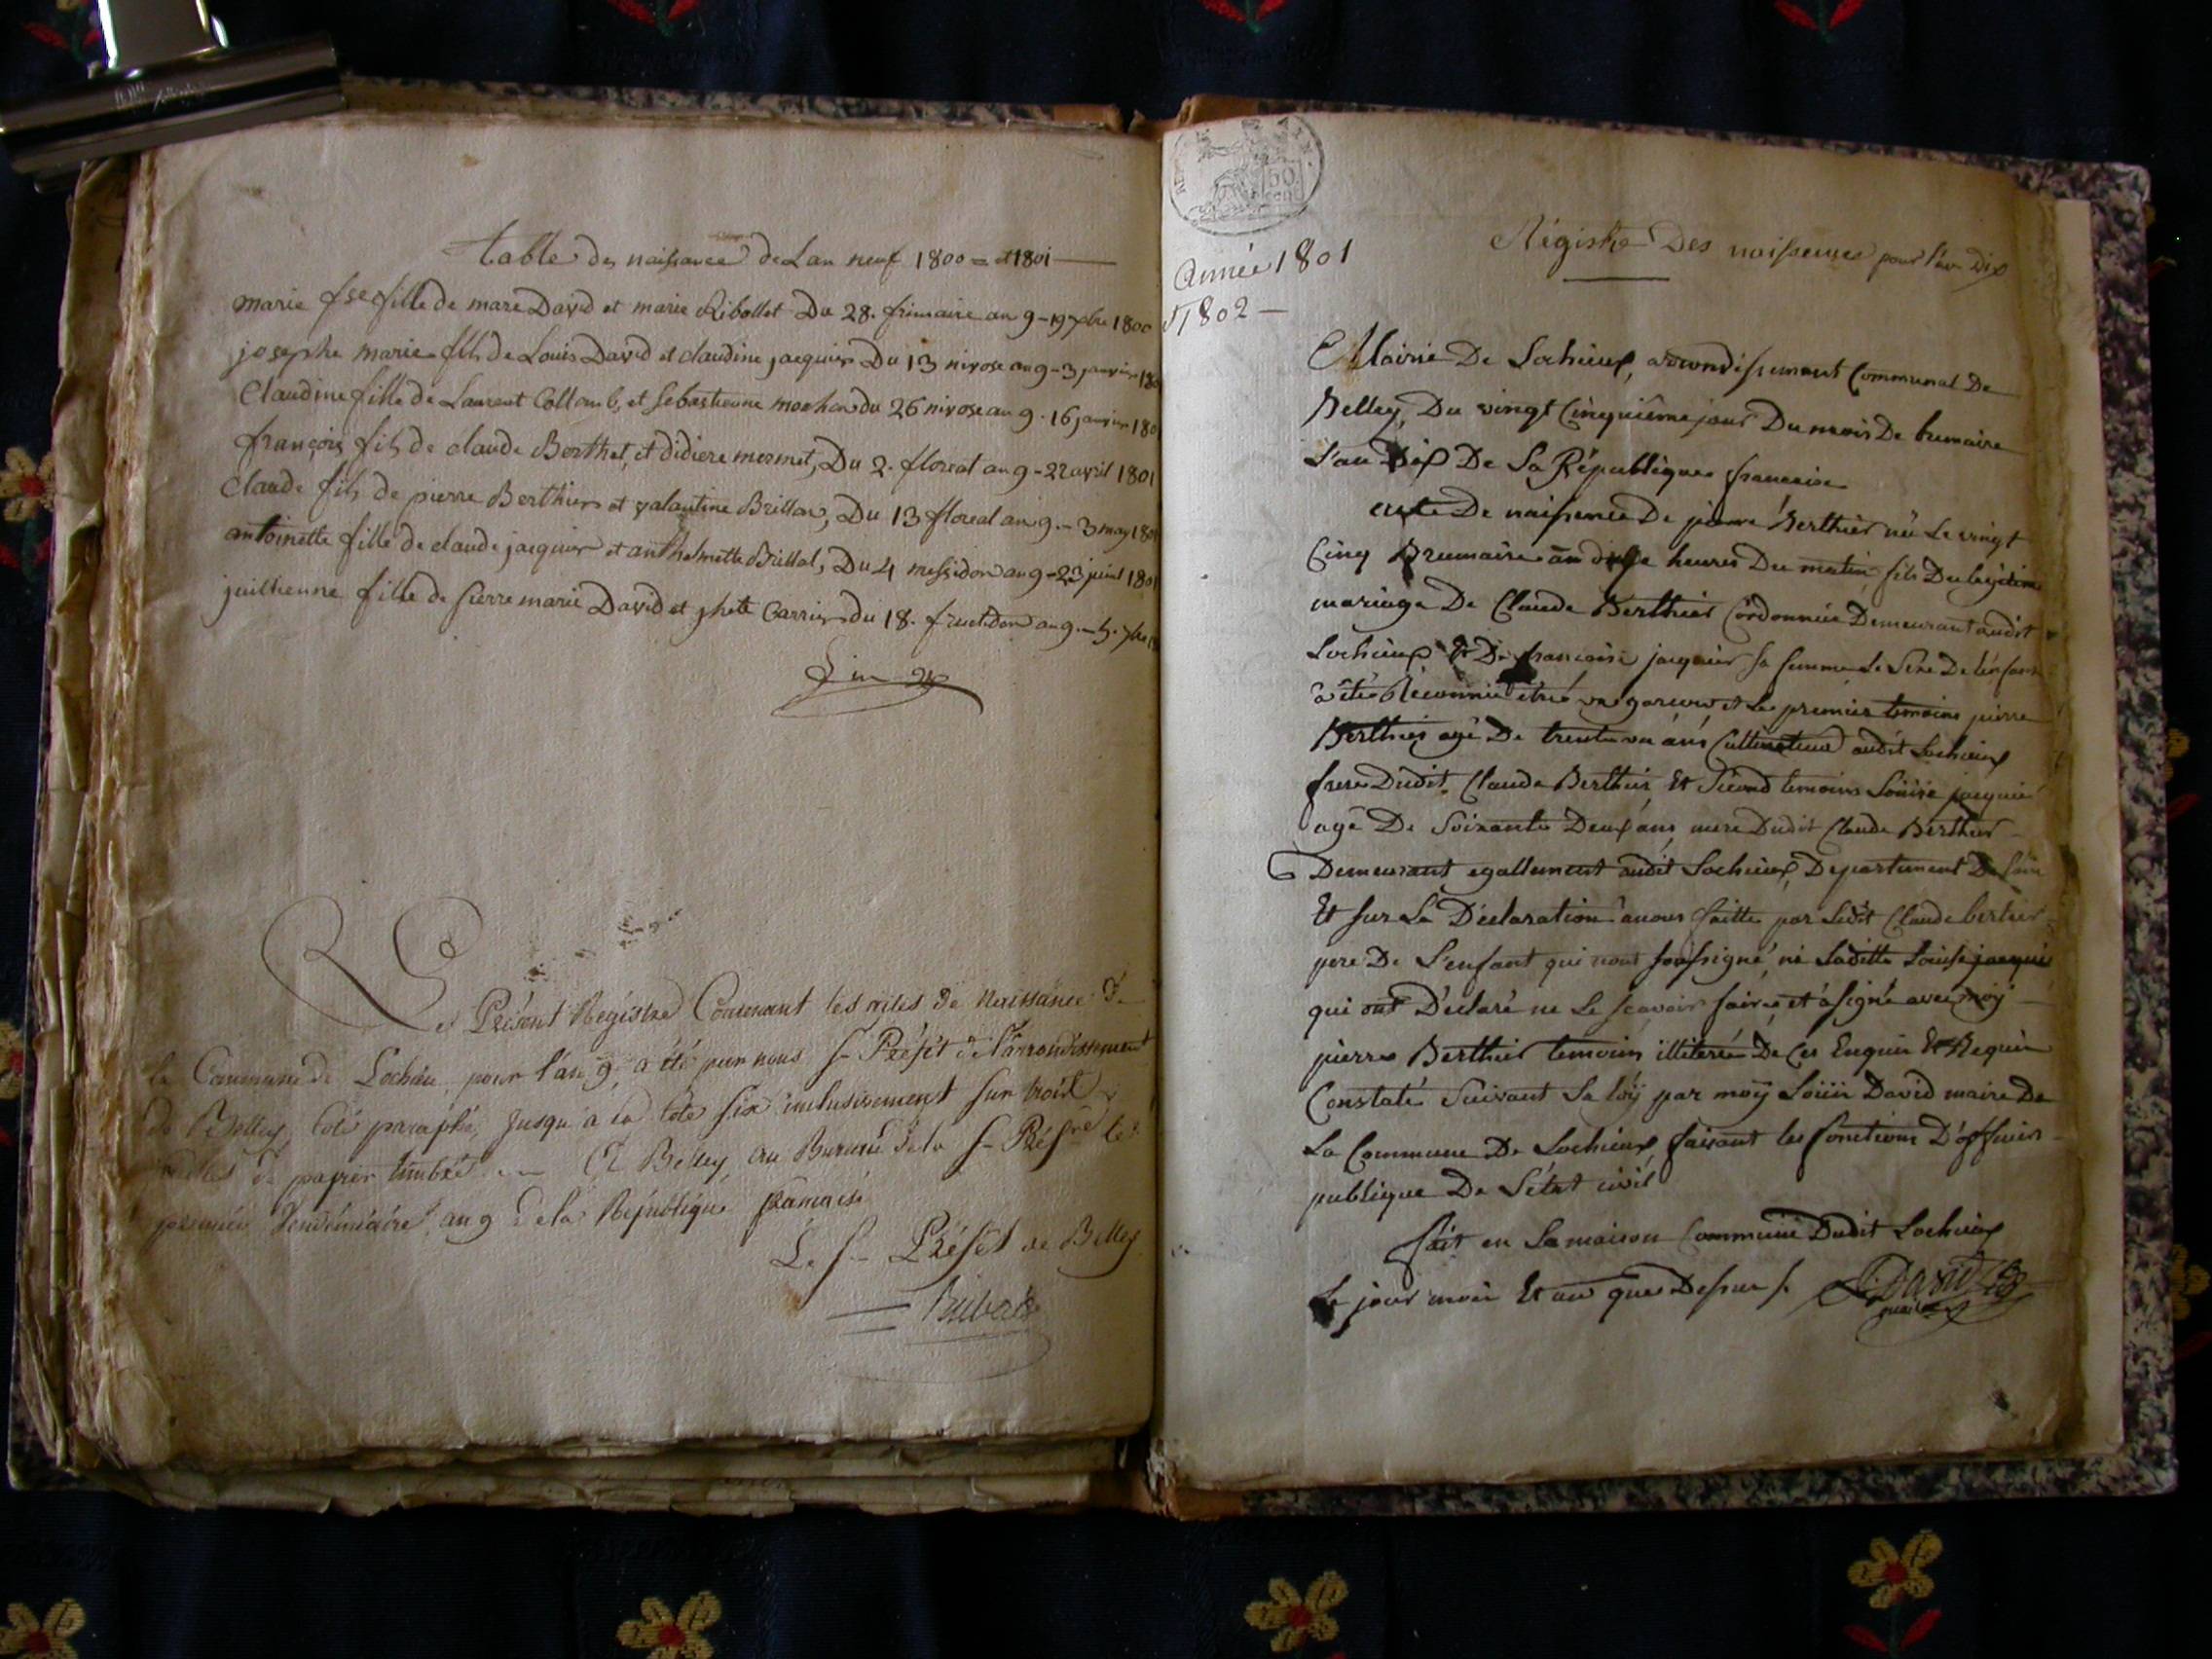 table des naissance de Lan neuf 1800 = et 1801
marie fse fille de marc David et marie Ribollet Du 28. frimaire an 9 - 19 xbre 1800
josephe marie fils de Louis David et claudine jacquier Du 13 nivose an 9 - 3 janvier 180
Claudine fille de Laurent Collomb, et sebastienne mochon du 26 nivose an 9 - 16 janvier 180
françois fils de claude Berthet, et didiere mermet, Du 2. floreal an 9 - 22 avril 1801
claude fils de pierre Berthier et valantine Brillat, Du 13 floreal an 9. - 3 may 180
antoinette fille de claude jacquier et anthelmette Brillat, Du 4 messidor an 9 - 23 juin 1801
jullienne fille de pierre marie David et Carrier du 18. fructidor an 9. - 5. 7bre
fin
Le Présent Régistre Contenant les actes de Naissance de
la Commune de Lochieu pour l'an 9, a été par nous s- Préfet de l'arrondissement
de Belley, coté paraphé, jusqu'a la cote six inclusivement sur trois
de papier timbré A Belley, au Bureau de la s- Préfre le
premier Vendémiaire an 9 de la République française
Le s- Préfet de Belley
50
Année 1801
et 1802
Régistre Des naissences pour l'an Dix
Mairie De Lochieux, arrondissement Communal De
Belley, Du vingt Cinquième jour Du mois De brumaire
L'an Dix De La République francaise
acte De naissence De pierre Berthier né Le vingt
Cinq Brumaire heures Du matin fils Du legitime
mariage De Claude Berthier Cordonnié Demeurant audit
Lochieux Et De francoise jacquier sa femme Le sexe De lenfant
a été Réconnue être un garcon, et Le premier temoins pierre
Berthier agé De trente un ans Cultivateur audit Lochieux
frere Dudit Claude Berthier Et Sécond temoins Loüise jacquié
agé De Soixante Deux ans mere Dudit Claude Berthier
Demeurant egallement audit Lochieux, Departement De Lain
Et sur La Déclaration a nous faitte par Ledit Claude bertier
pere De L'enfant qui nont soussigné, ni Laditte Louise jacquié
qui ont Déclaré ne Le scavoir faire, et a signé avec moÿ
pierre Berthier temoin De Ces Enquis Et Requis
Constaté Suivant La loÿ par moÿ Loüis David maire De
La Commune De Lochieux faisant les fonctions D'officier
publique De L'état civil
fait en La maison Commune Dudit Lochieux
Le jour mois Et an que Dessus /. L. David
maire